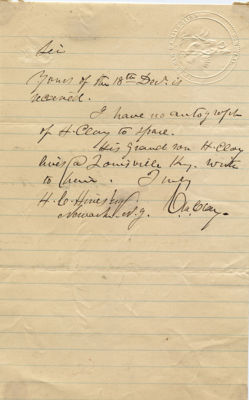 Sir
Yours of the 18th Decr. is
received.
I have no autograph
of H. Clay to spare.
His grand son H. Clay
lives @ Louisville Ky. write
to him. Truly
H. C. Hines
Newark N.J. Clay.